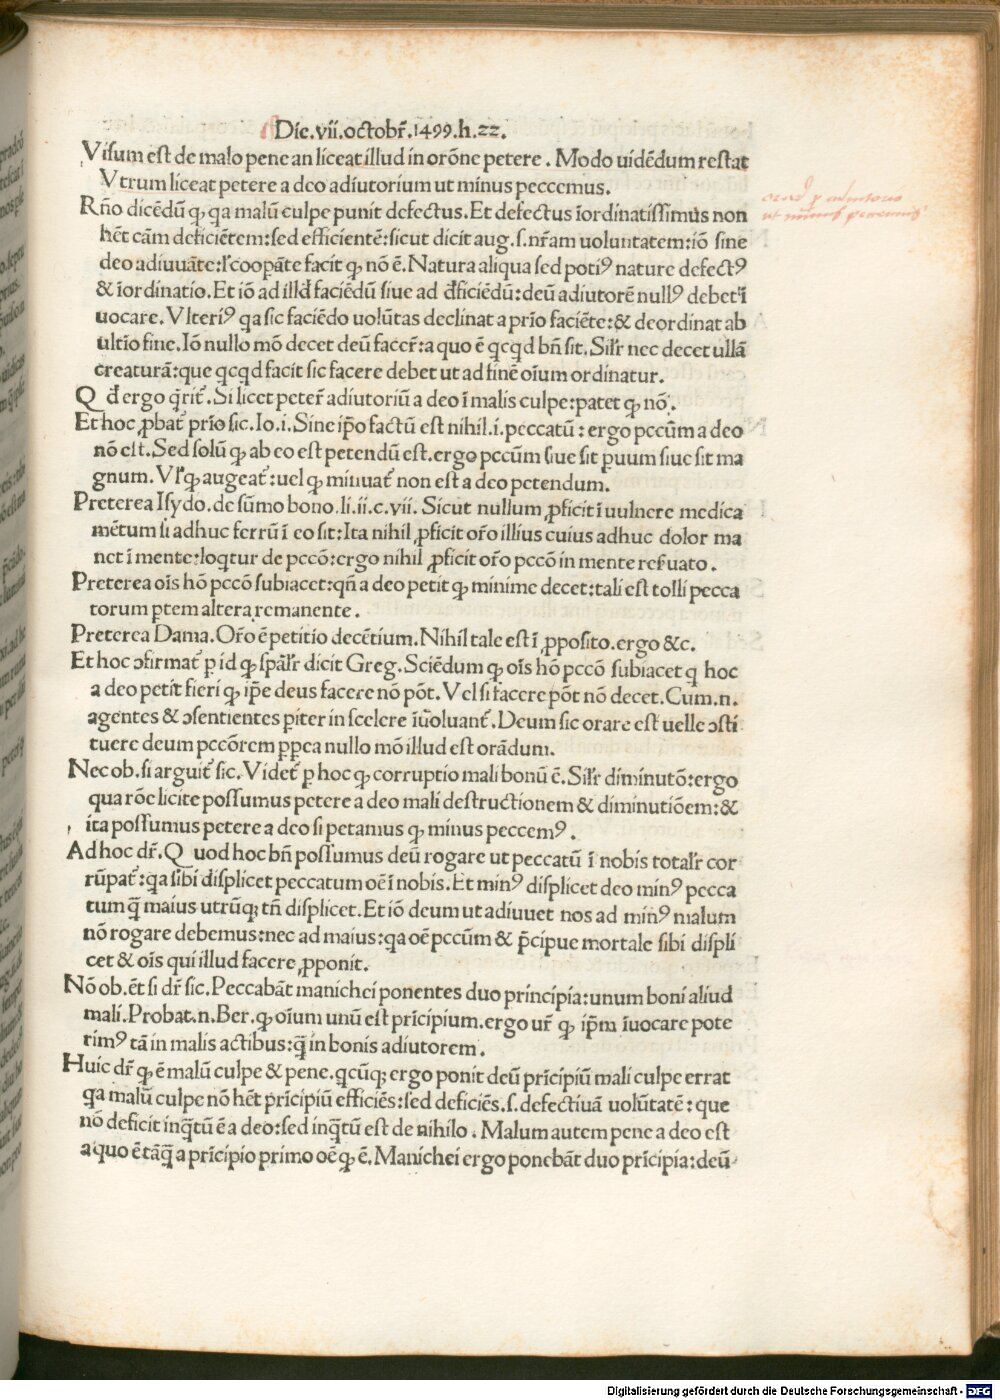 Die.vii.octobr̃.1499.h.22.
Visum est de malo pene an liceat illud in orõne petere. Modo uidẽdum restat
Vtrum liceat petere a deo adiutorium ut minus peccemus.
Rñо dicẽdũ ꝙ, qa malũ culpe punit defectus. Et defectus ĩordinatissimus non
hẽt cãm deficiẽtem: sed efficientẽ: sicut dicit aug.s.nr̃am uoluntatem: iõ sine
deo adiuuãte: ł coopãte facit ꝙ nõ ẽ. Natura aliqua sed potiꝰ nature defectꝰ
& ĩordinatio. Et iõ ad illđ faciẽdũ siue ad đficiẽdũ: deũ adiutorẽ nullꝰ debet ĩ
uocare. Vlteriꝰ qa sic faciẽdo uolũtas declinat a prĩo faciẽte: & deordinat ab
ultĩo fine. Iõ nullo mõ decet deũ facer̃: a quo ẽ qcqd bñ sit. Sil̃r nec decet ullã
creaturã: que qcqd facit sic facere debet ut ad finẽ oĩum ordinatur.
Q đ ergo q̃rit̃. Si licet peter̃ adiutoriũ a deo ĩ malis culpe: patet ꝙ nõ.
Et hoc ꝓbat̃ prĩo sic. Io.i. Sine ip̃o factũ est nihil.i.peccatũ: ergo pccũm a deo
nõ est. Sed solũ ꝙ ab eo est petendũ est. ergo pccũm siue sit puum siue sit ma
gnum. Vł ꝙ augeat̃: uel ꝙ minuat̃ non est a deo petendum.
Preterea Isydo. de sũmo bono.li.ii.c.vii. Sicut nullum ꝓficit ĩ uulnere medica
mẽtum si adhuc ferrũ ĩ eo sit: Ita nihil ꝓficit or̃o illius cuius adhuc dolor ma
net ĩ mente: loqtur de pccõ: ergo nihil ꝓficit or̃o pccõ in mente reseruato.
Preterea oĩs hõ pccõ subiacet: qñ a deo petit ꝙ minime decet: tali est tolli pecca
torum ptem altera remanente.
Preterea Dama. Or̃o ẽ petitio decẽtium. Nihil tale est ĩ ꝓposito. ergo &c.
Et hoc ↄfirmat̃ p id ꝙ sp̃al̃r dicit Greg. Sciẽdum ꝙ oĩs hõ pccõ subiacet q hoc
a deo petit fieri ꝙ ip̃e deus facere nõ põt. Vel si facere põt nõ decet. Cum.n.
agentes & ↄsentientes piter in scelere ĩuoluant̃. Deum sic orare est uelle ↄsti
tuere deum pccõrem ppea nullo mõ illud est orãdum.
Nec ob. si arguit̃ sic. Videt̃ p hoc ꝙ corruptio mali bonũ ẽ. Sil̃r diminutõ: ergo
qua rõe licite possumus petere a deo mali destructionem & diminutiõem: &
ita possumus petere a deo si petamus ꝙ minus peccemꝰ.
Ad hoc dr̃. Q uod hoc bñ possumus deũ rogare ut peccatũ ĩ nobis total̃r cor
rũpat̃: qa sibi displicet peccatum oẽ ĩ nobis. Et minꝰ displicet deo minꝰ pecca
tum q̃ maius utrũq; tñ displicet. Et iõ deum ut adiuuet nos ad minꝰ malum
nõ rogare debemus: nec ad maius: qa oẽ pccũm & p̃cipue mortale sibi displi
cet & oĩs qui illud facere ꝓponit.
Nõ ob. ẽt si dr̃ sic. Peccabãt manichei ponentes duo principia: unum boni aliud
mali. Probat.n. Ber. ꝙ oĩum unũ est prĩcipium. ergo ur̃ ꝙ ip̃m ĩuocare pote
rimꝰ tã in malis actibus: q̃ in bonis adiutorem.
Huic dr̃ ꝙ ẽ malũ culpe & pene. qcũq; ergo ponit deũ prĩcipiũ mali culpe errat
qa malũ culpe nõ hẽt prĩcipiũ efficiẽs: sed deficiẽs.s.defectiuã uolũtatẽ: que
nõ deficit inq̃tũ ẽ a deo: sed inq̃tũ est de nihilo. Malum autem pene a deo est
a quo ẽ tãq̃ a prĩcipio primo oẽ ꝙ ẽ. Manichei ergo ponebãt duo prĩcipia: deũ
ut minus peccemus
Digitalisierung gefördert durch die Deutsche Forschungsgemeinschaft - DFG